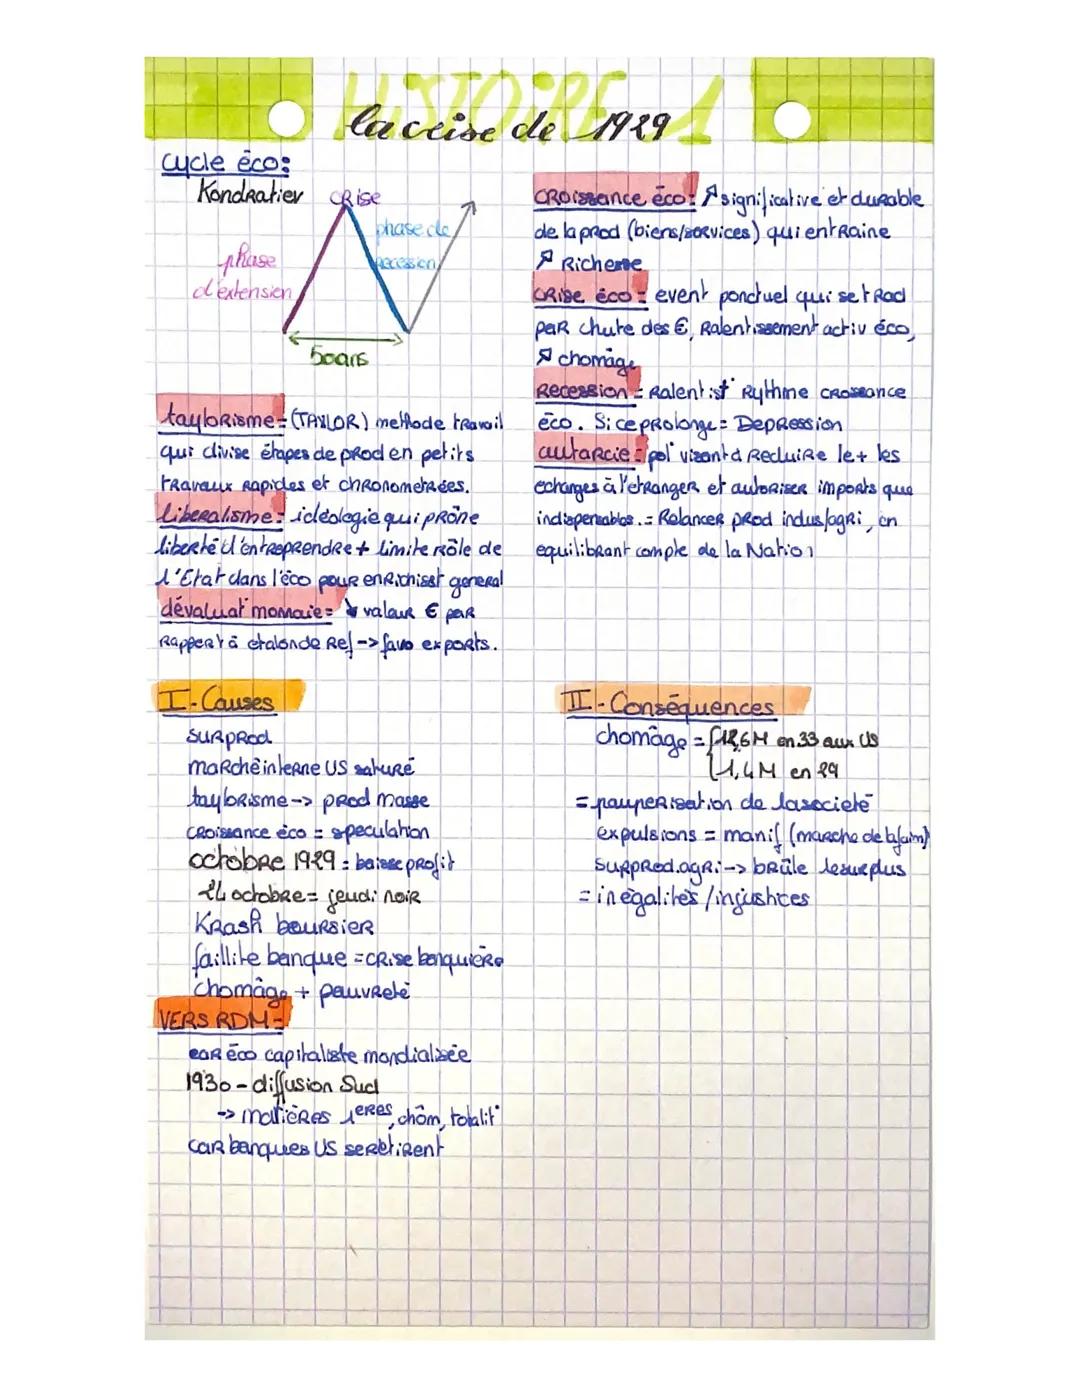 HISTOIRE 1
la crise de 1929
cycle éco:
Kondratiev
CRise
phase de
recession
phase
d'extension
50ans
taylorisme = (TAYLOR) methode travail
qui divise étapes de prod en petits
travaux rapides et chronometrées.
liberalisme = ideologie qui prône
liberté d'entreprendre + limite rôle de
l'Etat dans l'éco pour enrichisst general
dévaluat° monnaie = ↘ valeur € par
rapport à etalon de ref -> favo exports.
croissance éco: ↗ significative et durable
de la prod (biens/services) qui entraine
↗ Richesse
CRise éco = event ponctuel qui se trad
par chute des €, ralentissement activ éco,
↗ chomâge
Recession = Ralentist° Rythme croissance
éco. Si ce prolonge = Depression
autarcie = pol° visant à Reduire le + les
echanges à l'etranger et autoriser imports que
indispensables. = Relancer prod indus/agri, en
equilibrant compte de la Nation
I - Causes
surprod
marché interne US saturé
taylorisme -> prod masse
croissance éco = speculation
octobre 1929 = baisse profit
24 octobre = jeudi noir
Krash boursier
faillite banque = crise banquière
chomâge + pauvreté
VERS RDM =
car éco capitaliste mondialisée
1930 - diffusion Sud
-> matières 1ERES, chôm, totalit°
car banques US se retirent
II - Conséquences
chomâge = { 12,6M en 33 aux US
1,4M en 29
= pauperisation de la societé
expulsions = manif (marche de la faim)
surprod.agri -> brûle le surplus
= inégalités / injustices